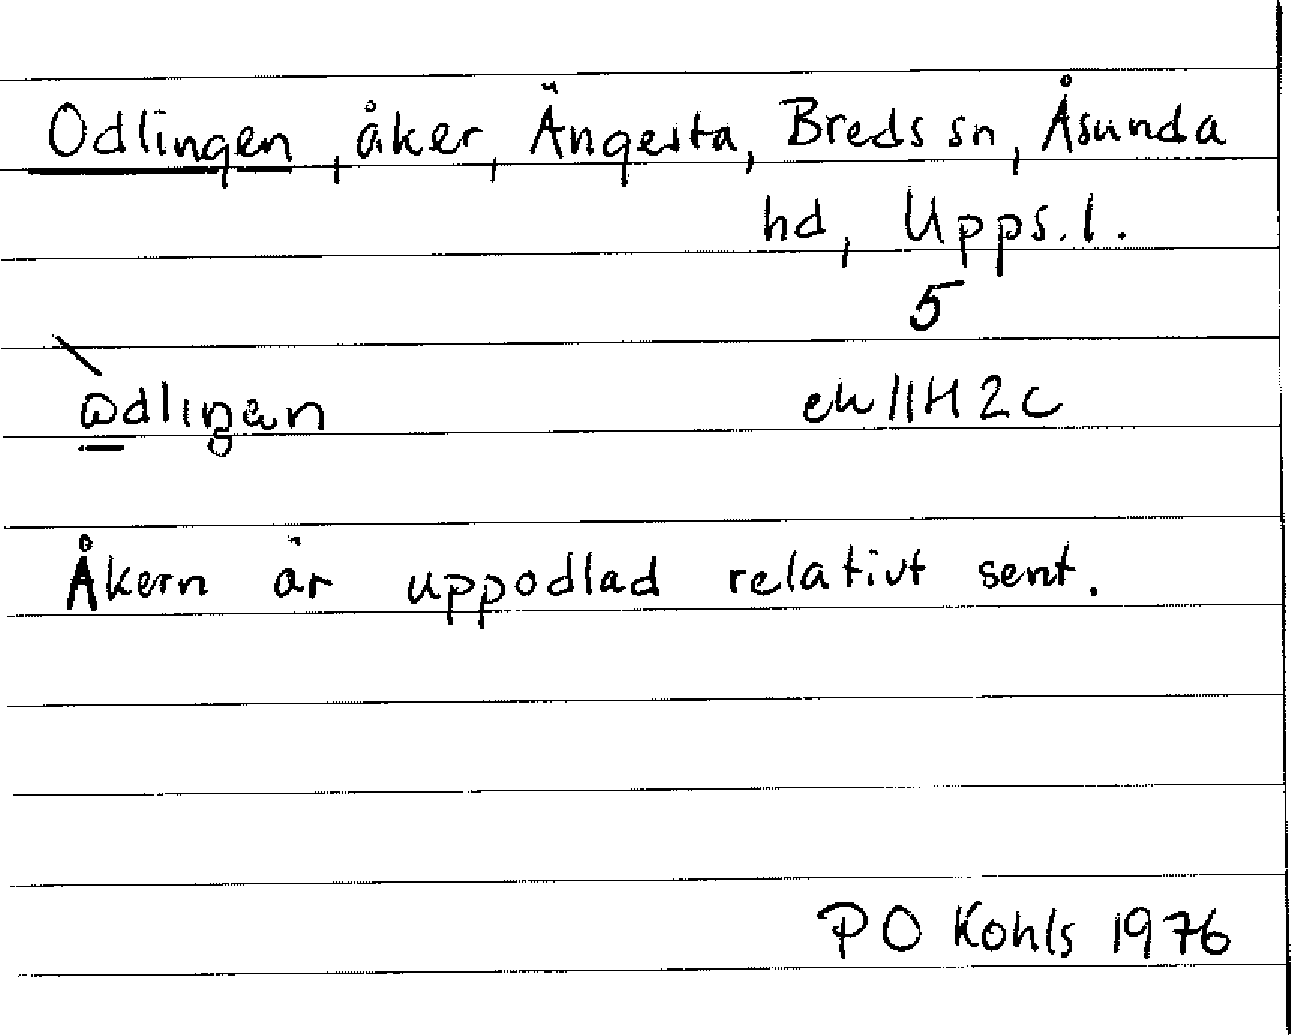 Odlingen, åker, Ängesta, Breds sn, Åsunda
hd, Upps. l.
5
ek 11H2c
Åkern är uppodlad relativt sent.
PO Kohls 1976